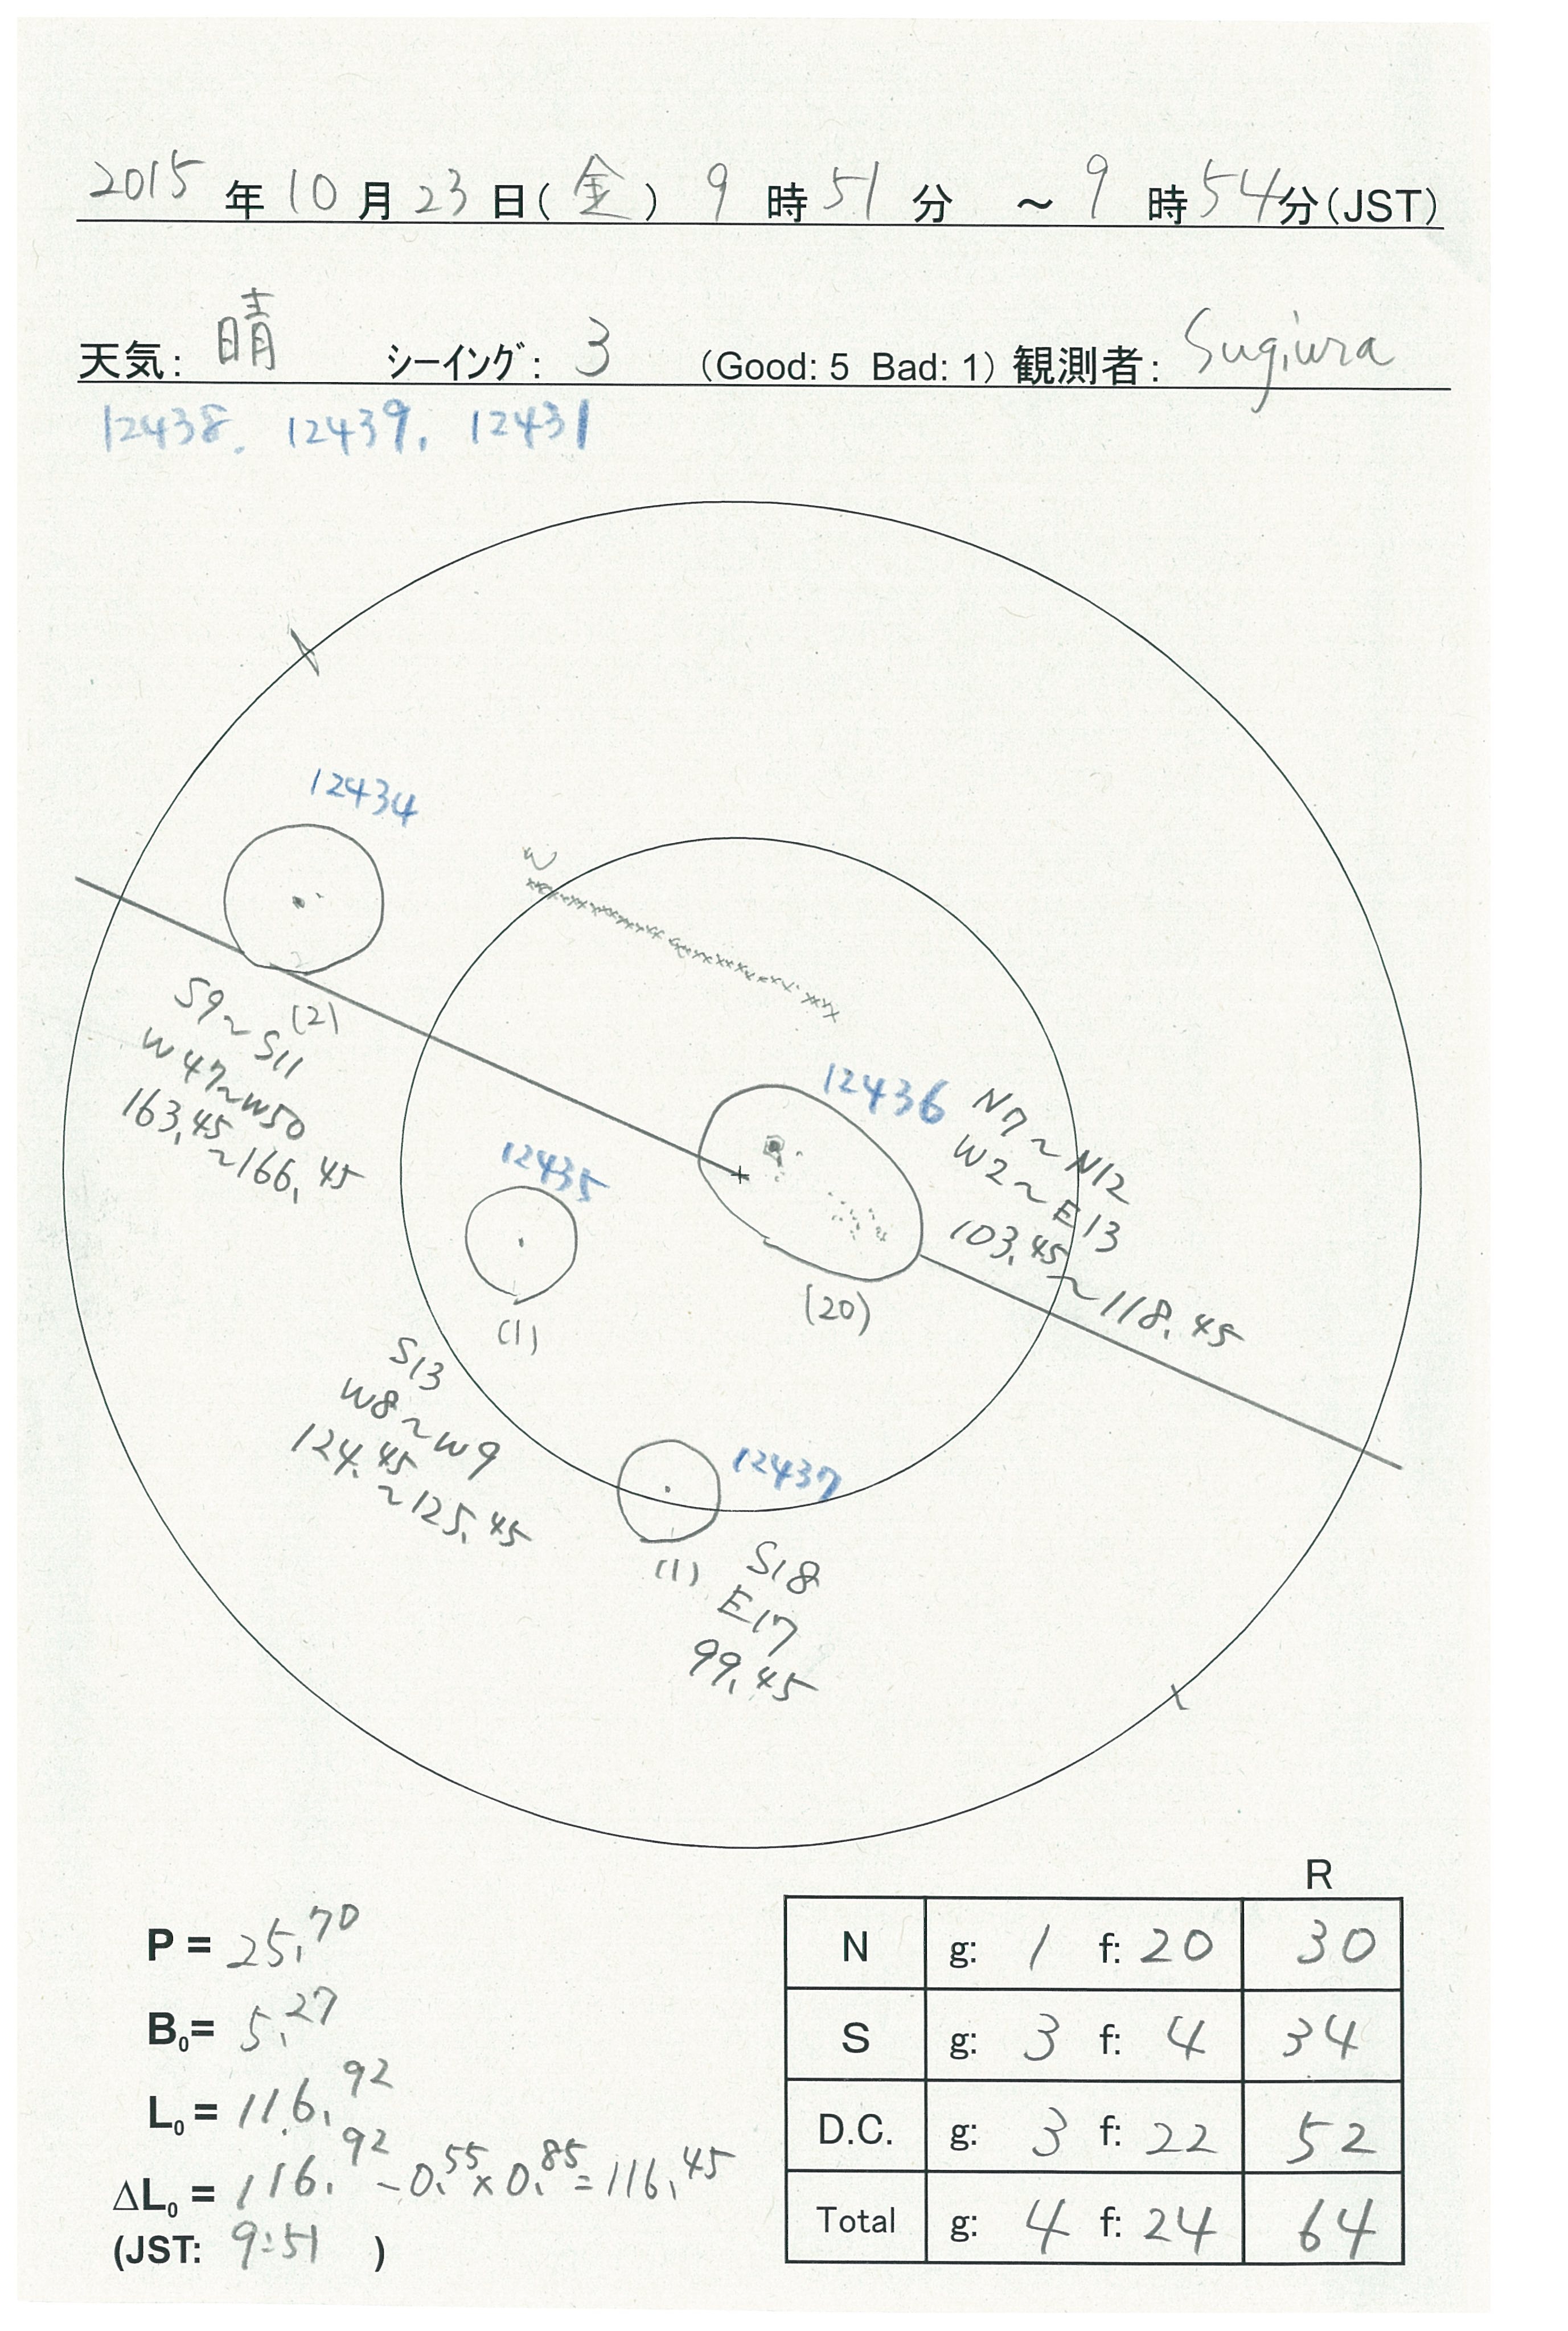 2015年10月23日(金) 9時51分 ～9時54分(JST)
天気: 晴 シーイング: 3 (Good: 5 Bad: 1) 観測者: Sugiura
12438. 12439. 12431
12434
W
(2)
S9~S11
W47~W50
163.45~166.45
12436
N7~N12
W2~E13
103.45~118.45
(20)
12435
(1)
S13
W8~W9
124.45~125.45
12437
(1)
S18
E17
99.45
P = 25.70
B0= 5.27
L0 = 116.92
ΔL0 = 116.92 - 0.55 × 0.85 = 116.45
(JST: 9:51 )
R
N g: 1 f: 20 30
S g: 3 f: 4 34
D.C. g: 3 f: 22 52
Total g: 4 f: 24 64